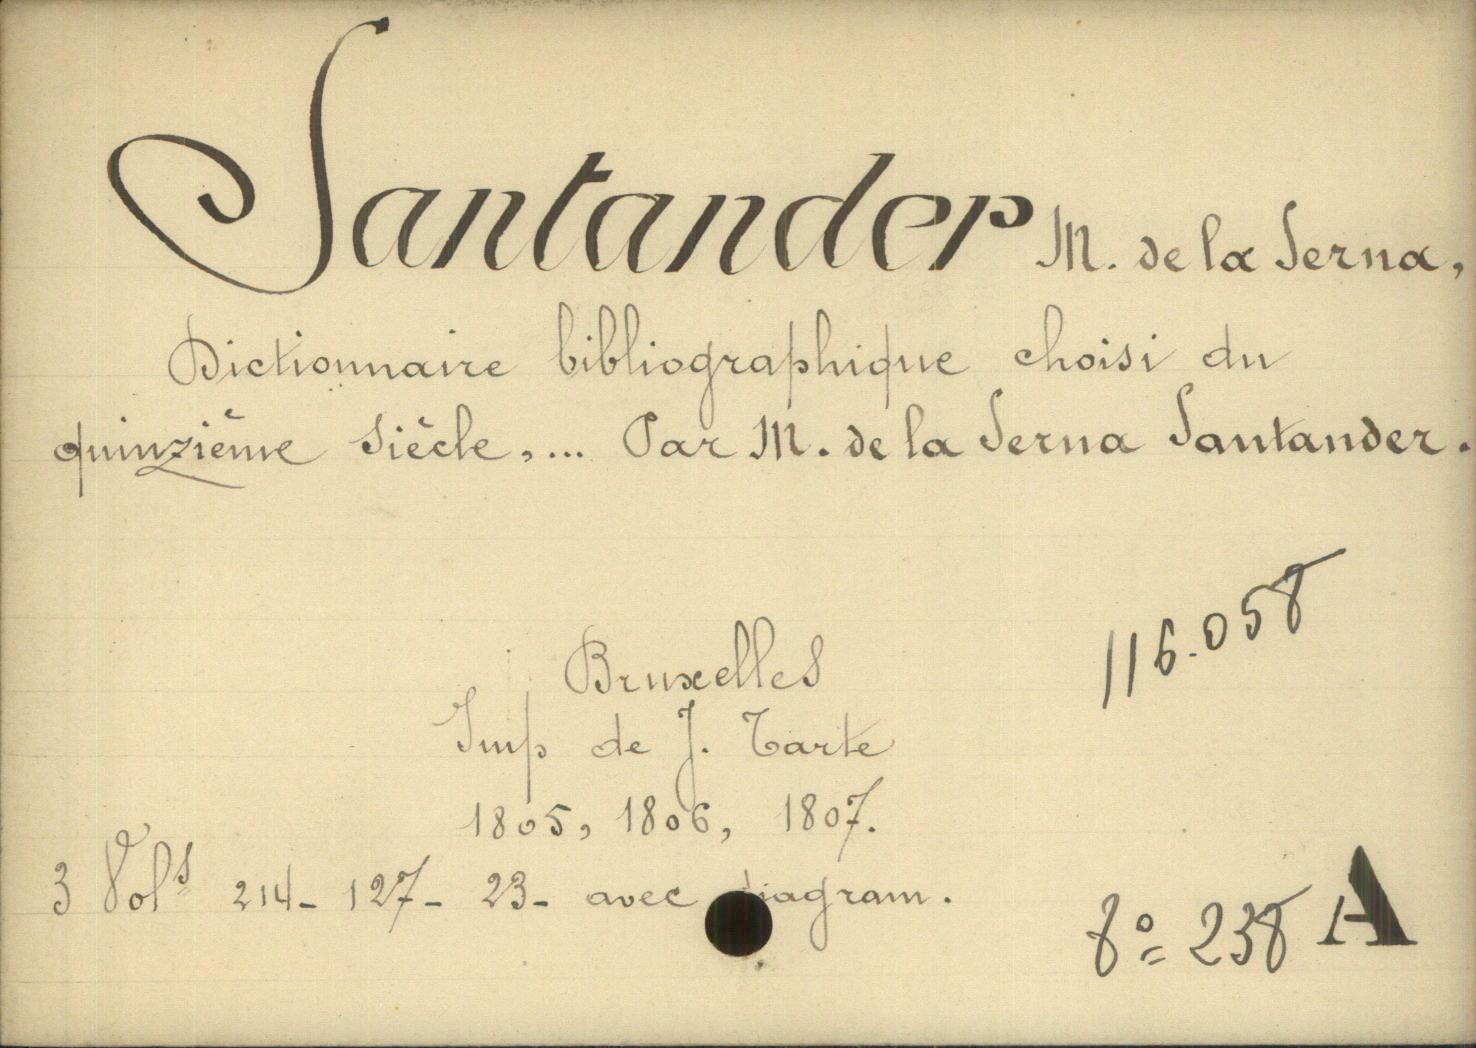 Santander M. de la Serna,
Dictionnaire bibliographique choisi du
quinzième siècle,... Par M. de la Serna Santander.
116.058
Bruxelles
Imp de J. Tarte
1805, 1806, 1807.
3 Vols 214- 127- 23- avec diagram.
8º 238 A